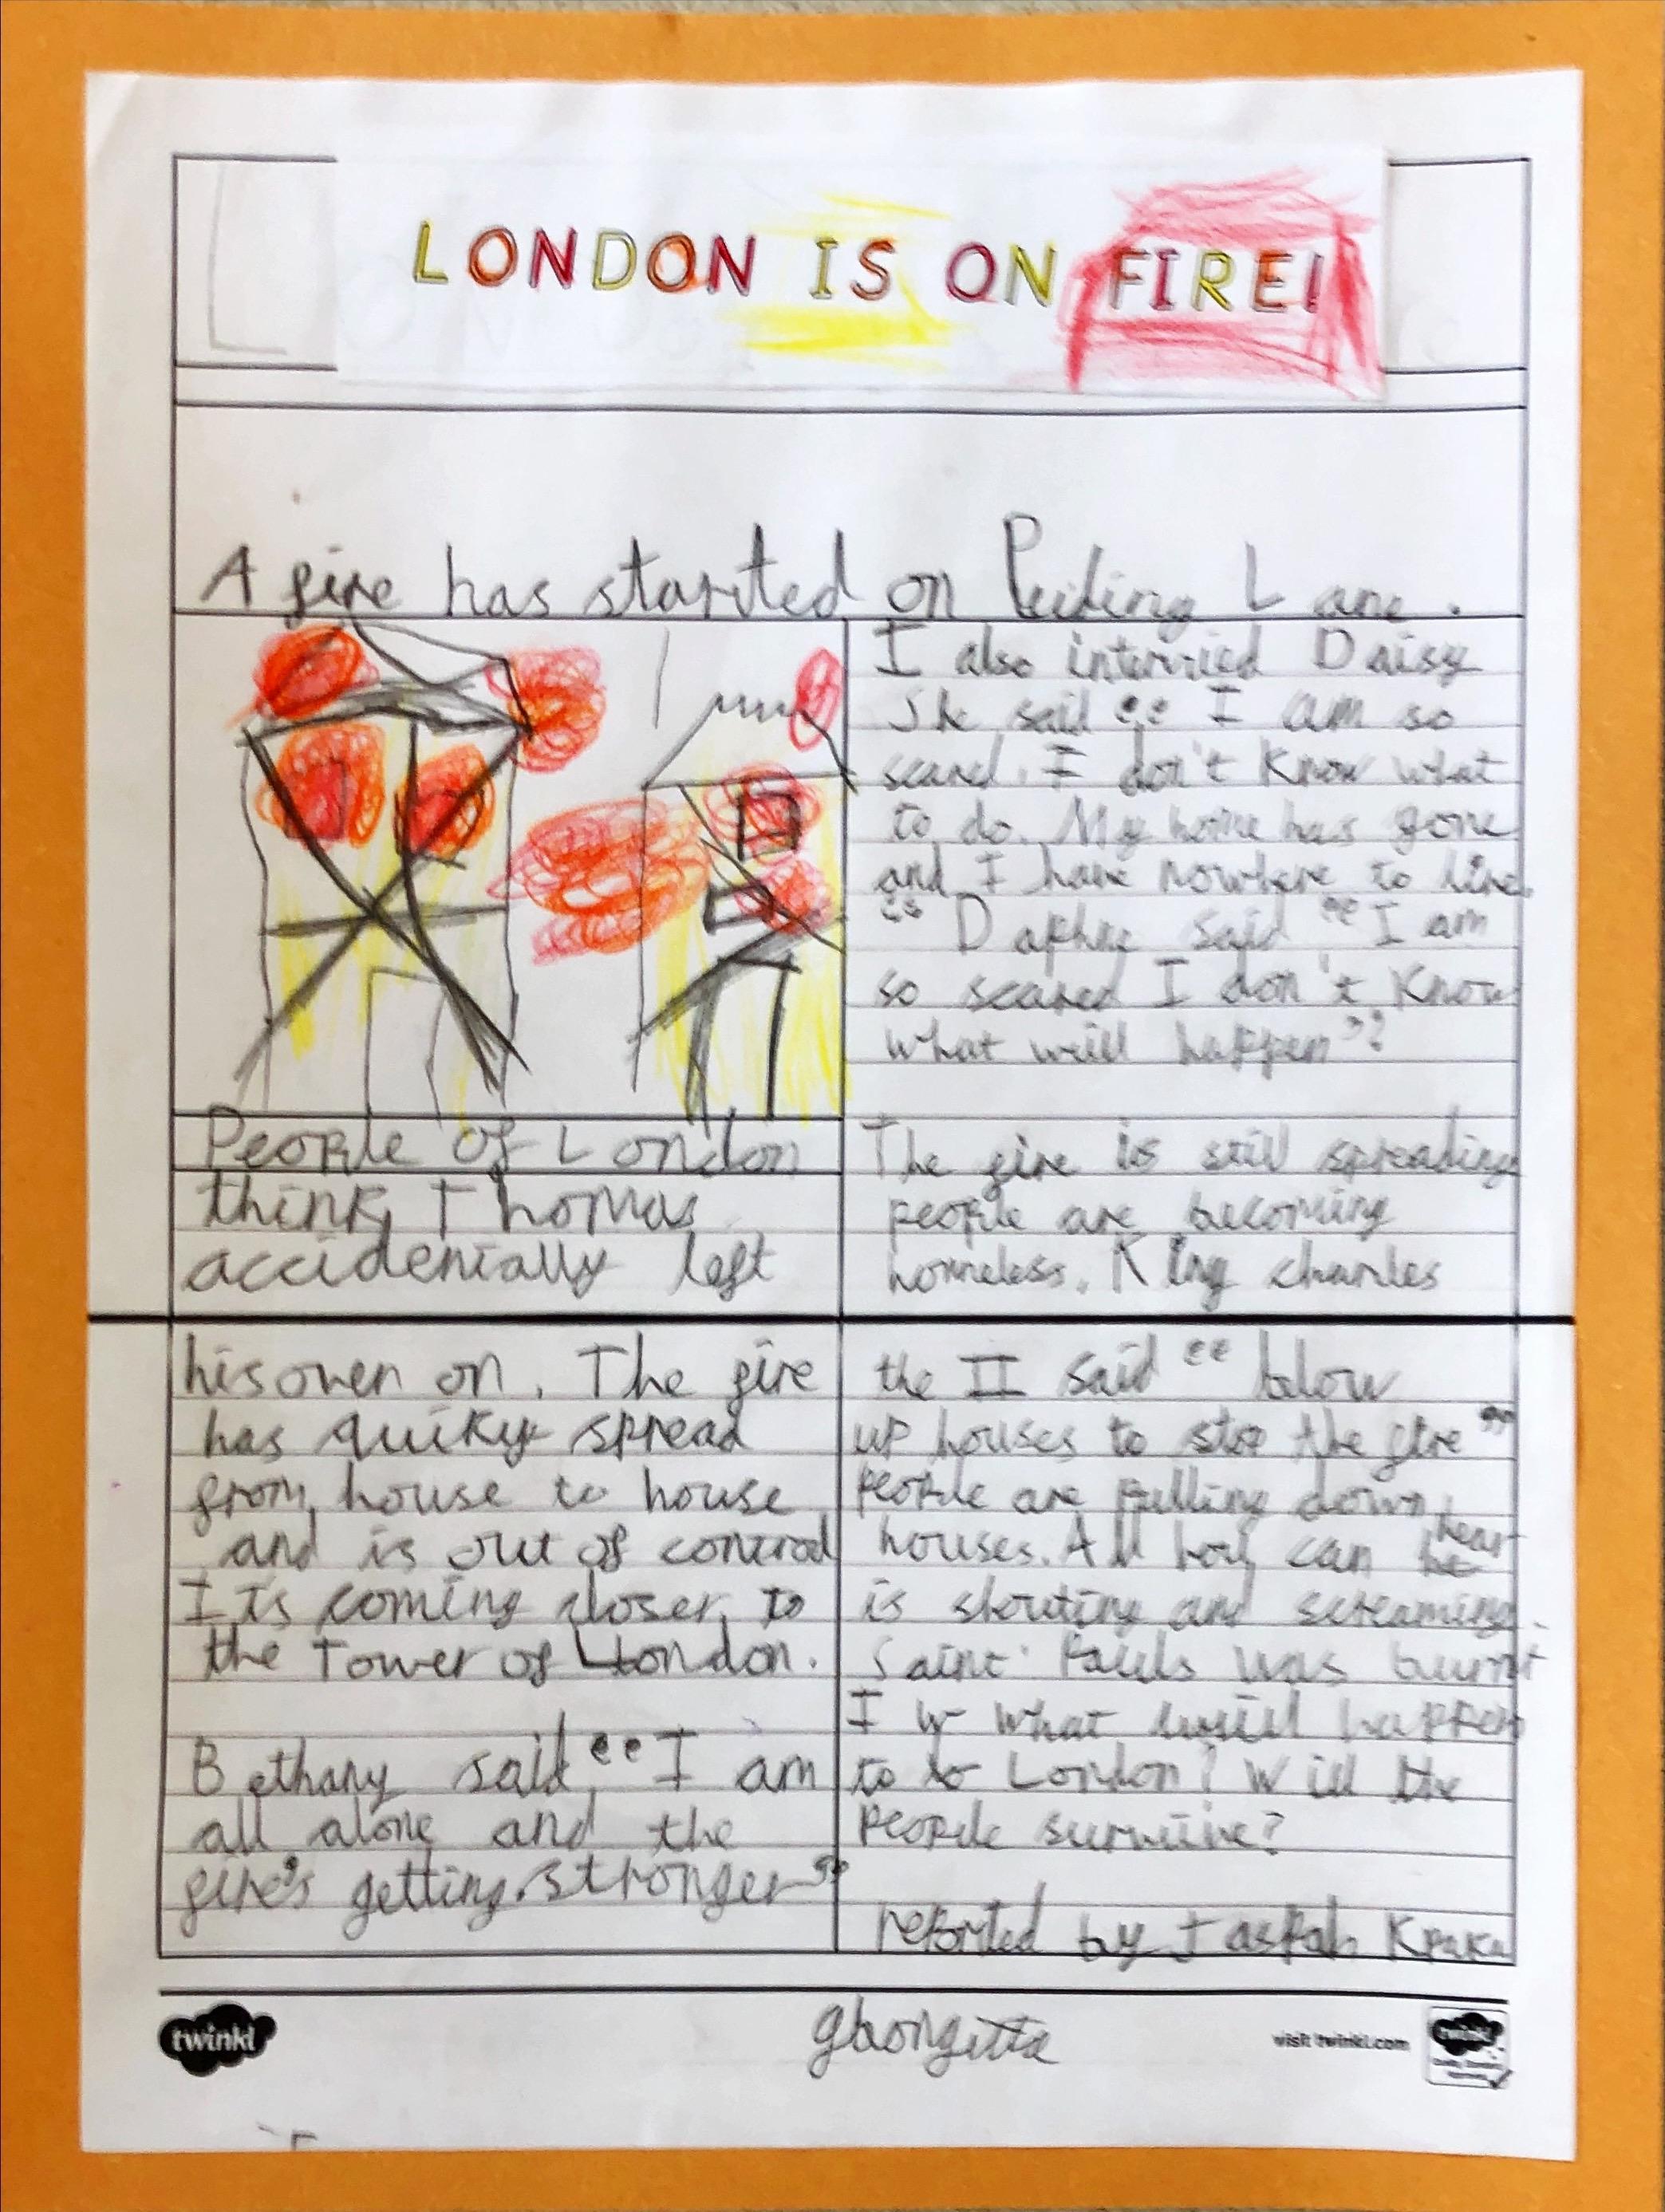 LONDON IS ON FIRE!
A fire has started on Puding Lane.
People of London
think Thomas
accidenially left
his oven on. The fire
has quikyr spread
from house to house
and is out of control
It is coming closer to
the Tower of London.
Bethany said “ I am
all alone and the
fire's getting stronger”
I also interviied Daisy
She said “ I am so
scared. I don't know what
to do. My home has gone
and I have nowhere to live.
“ Daphne said “ I am
so scared I don't know
what will happen”?
The fire is still spreading
people are becoming
homeless. King charles
the II said “ blow
up houses to stop the fire”
people are pulling down
houses. All you can hear
is shouting and screaming.
Saint Pauls was burnt
I w what will happen
to to London? Will the
people survive?
reported by Jaspah
twinkl
visit twinkl.com
twinkl